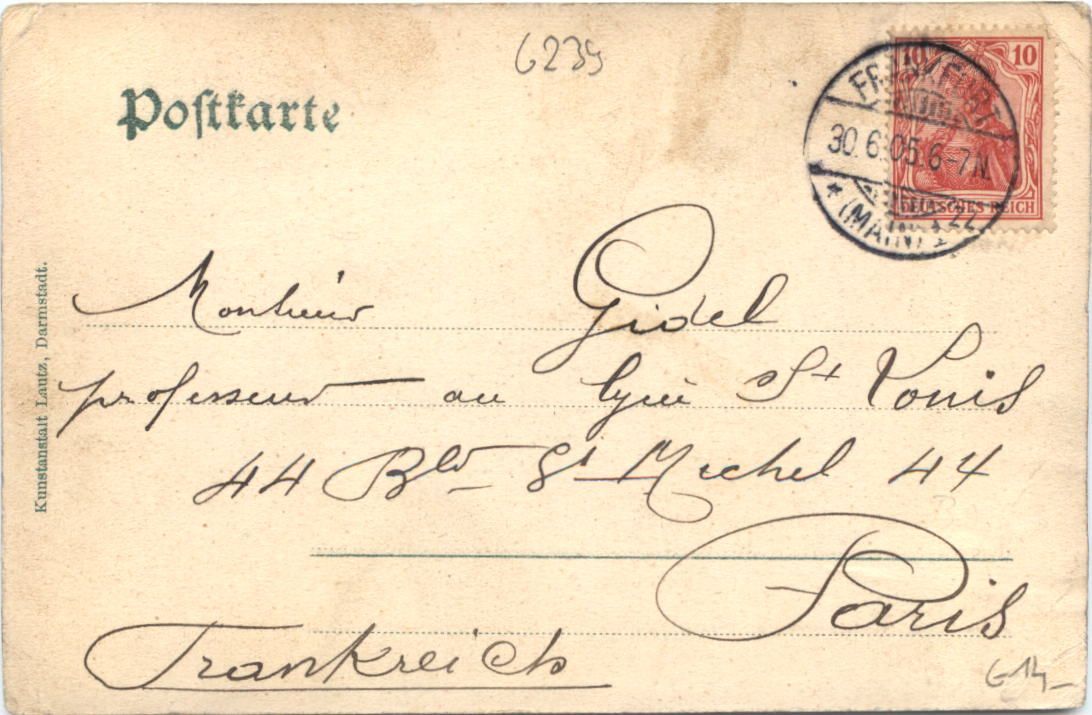 6239
Postkarte
10 10
FRANKFURT
30.6.05.6-7N.
* (MAIN) 1
DEUTSCHES REICH
Monsieur Gidel
professeur au lycée St Louis
44 Bld St Michel 44
Paris
Frankreich
Kunstanstalt Lautz, Darmstadt.